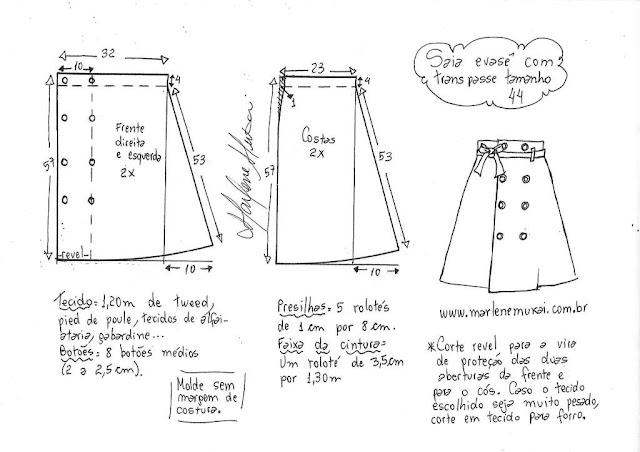 32
10
4
57
Frente
direita
e esquerda
2x
53
-revel-
10
23
4
1
57
Costas
2x
53
10
Marlene Mukai
Saia evasê com
transpasse tamanho
44
www.marlenemukai.com.br
Tecido= 1,20m de tweed,
pied de poule, tecidos de alfai-
ataria, gabardine...
Botões= 8 botões médios
(2 a 2,5cm).
Molde sem
margem de
costura.
Presilhas= 5 rolotés
de 1cm por 8cm.
Faixa da cintura=
Um roloté de 3,5cm
por 1,30m
*Corte revel para a vira
de proteção das duas
aberturas da frente e
para o cós. Caso o tecido
escolhido seja muito pesado,
corte em tecido para forro.